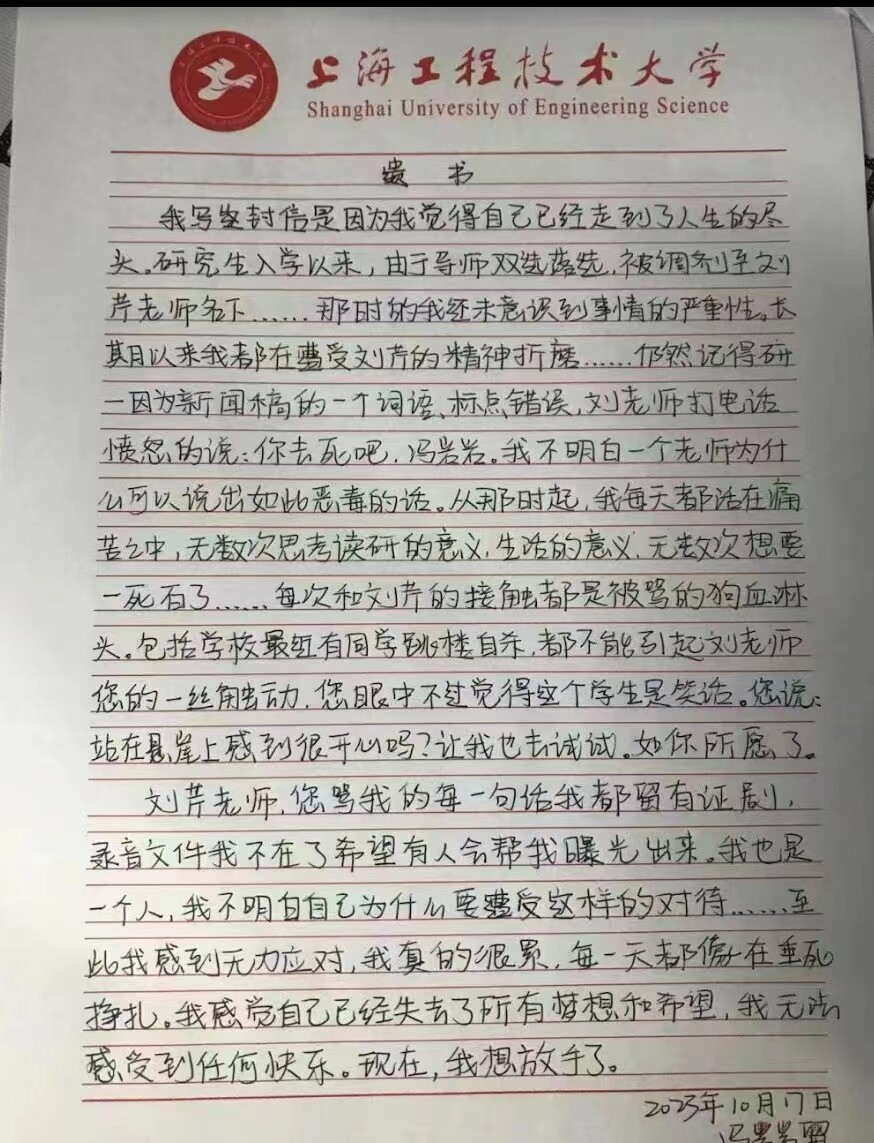 上海工程技术大学
Shanghai University of Engineering Science
遗书
我写这封信是因为我觉得自己已经走到了人生的尽
头。研究生入学以来，由于导师双选落选，被调剂至刘
芹老师名下……那时的我还未意识到事情的严重性。长
期以来我都在遭受刘芹的精神折磨……仍然记得研
一因为新闻稿的一个词语、标点错误，刘老师打电话
愤怒的说：你去死吧，冯岩岩。我不明白一个老师为什
么可以说出如此恶毒的话。从那时起，我每天都活在痛
苦之中，无数次思考读研的意义，生活的意义，无数次想要
一死百了……每次和刘芹的接触都是被骂的狗血淋
头。包括学校最近有同学跳楼自杀，都不能引起刘老师
您的一丝触动，您眼中不过觉得这个学生是笑话。您说：
站在悬崖上感到很开心吗？让我也去试试。如你所愿了。
刘芹老师，您骂我的每一句话我都留有证剧，
录音文件我不在了希望有人会帮我曝光出来。我也是
一个人，我不明白自己为什么要遭受这样的对待……至
此我感到无力应对，我真的很累，每一天都像在垂死
挣扎。我感觉自己已经失去了所有梦想和希望，我无法
感受到任何快乐。现在，我想放手了。
2023年10月17日